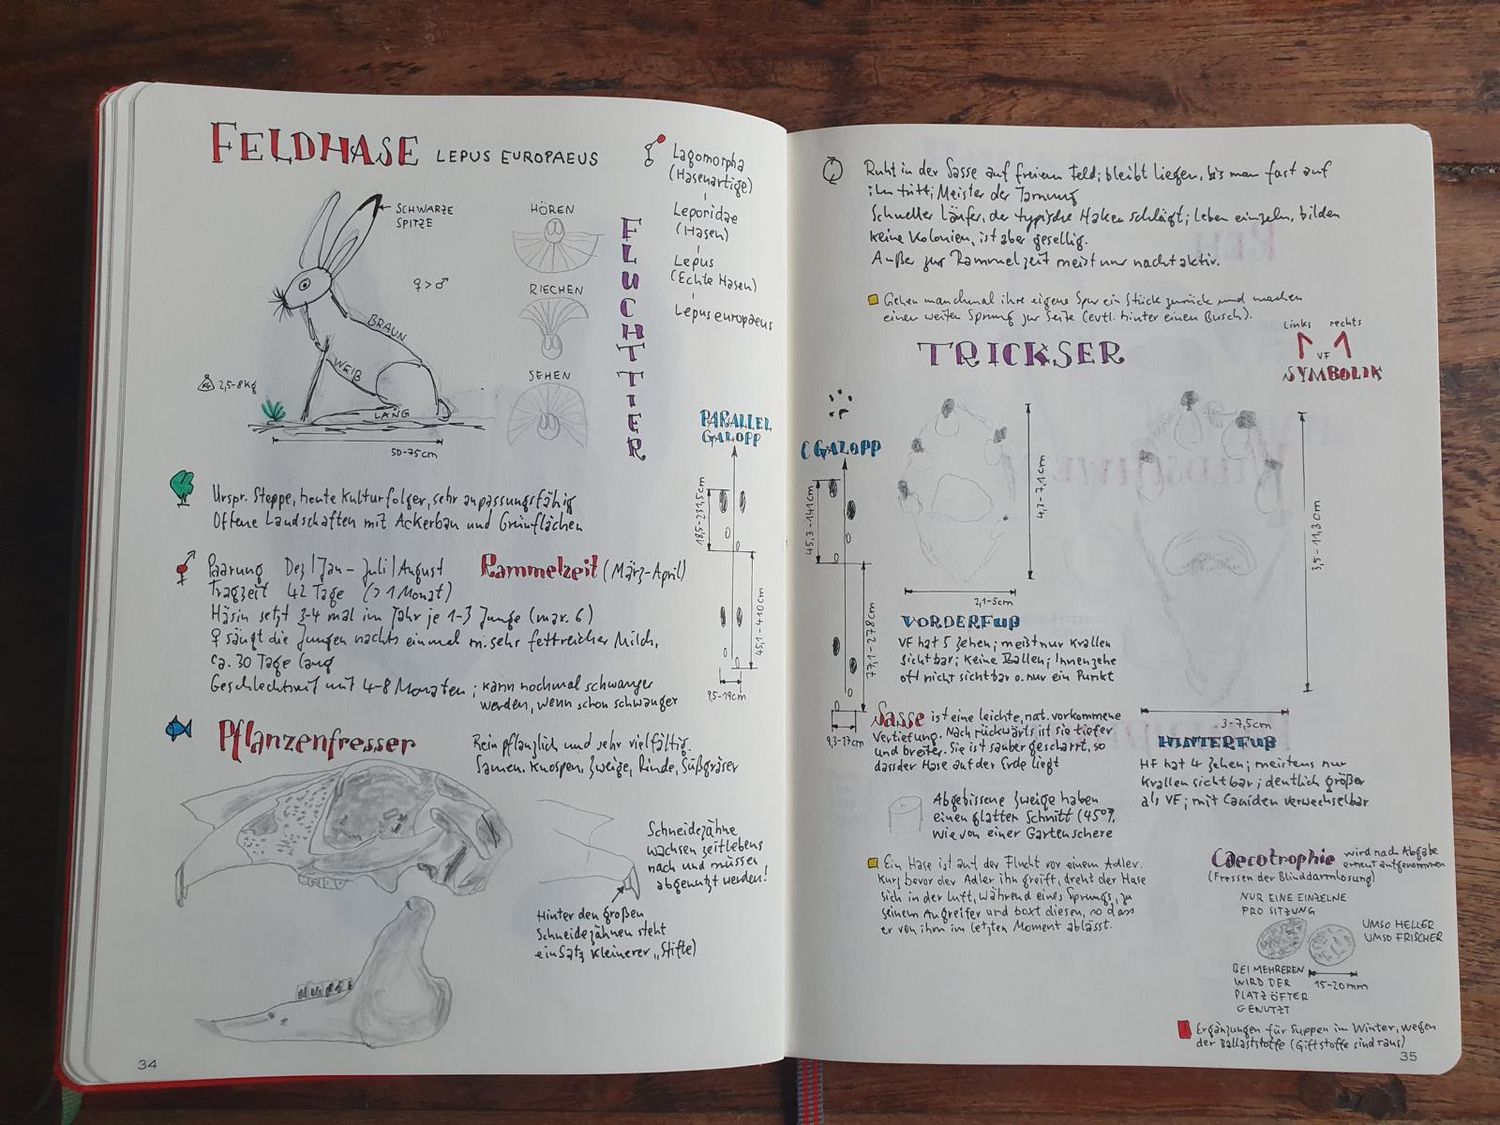 FELDHASE LEPUS EUROPAEUS
SCHWARZE
SPITZE
♀ > ♂
BRAUN
WEIß
LANG
KG 2,5-8kg
50-75cm
HÖREN
RIECHEN
SEHEN
FLUCHTTIER
Lagomorpha
(Hasenartige)
Leporidae
(Hasen)
Lepus
(Echte Hasen)
Lepus europaeus
Urspr. Steppe, heute Kulturfolger, sehr anpassungsfähig
Offene Landschaften mit Ackerbau und Grünflächen
Paarung Dez/Jan – Juli/August Rammelzeit (März-April)
Tragzeit 42 Tage (>1 Monat)
Häsin setzt 3-4 mal im Jahr je 1-3 Junge (max. 6)
♀ säugt die Jungen nachts einmal m. sehr fettreicher Milch,
ca. 30 Tage lang
Geschlechtsreif mit 4-8 Monaten; kann nochmal schwanger
werden, wenn schon schwanger
PARALLEL
GALOPP
18,5-231,5cm
45,1-410cm
9,5-19cm
Pflanzenfresser
Rein pflanzlich und sehr vielfältig.
Samen, Knospen, Zweige, Rinde, Süßgräser
Schneidezähne
wachsen zeitlebens
nach und müssen
abgenutzt werden!
Hinter den großen
Schneidezähnen steht
ein Satz kleinerer „Stifte)
34
Ruht in der Sasse auf freiem Feld; bleibt liegen, bis man fast auf
ihn tritt; Meister der Tarnung
Schneller Läufer, der typische Haken schlägt; leben einzeln, bilden
keine Kolonien, ist aber gesellig.
Außer zur Rammelzeit meist nur nachtaktiv.
Gehen manchmal ihre eigene Spur ein Stück zurück und machen
einen weiten Sprung zur Seite (evtl. hinter einen Busch).
TRICKSER
Links rechts
VF
SYMBOLIK
C GALOPP
45,3-141cm
77,1-278cm
9,3-17cm
4,3-7,1cm
2,1-5cm
VORDERFUß
VF hat 5 Zehen; meist nur Krallen
sichtbar; keine Ballen; Innenzehe
oft nicht sichtbar o. nur ein Punkt
3,5-11,3cm
3-7,5cm
HINTERFUß
HF hat 4 Zehen; meistens nur
Krallen sichtbar; deutlich größer
als VF; mit Caniden verwechselbar
Sasse ist eine leichte, nat. vorkommene
Vertiefung. Nach rückwärts ist sie tiefer
und breiter. Sie ist sauber gescharrt, so
dass der Hase auf der Erde liegt
Abgebissene Zweige haben
einen glatten Schnitt (45°),
wie von einer Gartenschere
Ein Hase ist auf der Flucht vor einem Adler.
Kurz bevor der Adler ihn greift, dreht der Hase
sich in der Luft, während eines Sprungs, zu
seinem Angreifer und boxt diesen, so dass
er von ihm im letzten Moment ablässt.
Caecotrophie wird nach Abgabe
erneut aufgenommen
(Fressen der Blinddarmlosung)
NUR EINE EINZELNE
PRO SITZUNG
UMSO HELLER
UMSO FRISCHER
BEI MEHREREN
WIRD DER
PLATZ ÖFTER
GENUTZT
15-20mm
Ergänzungen für Suppen im Winter, wegen
der Ballaststoffe (Giftstoffe sind raus)
35